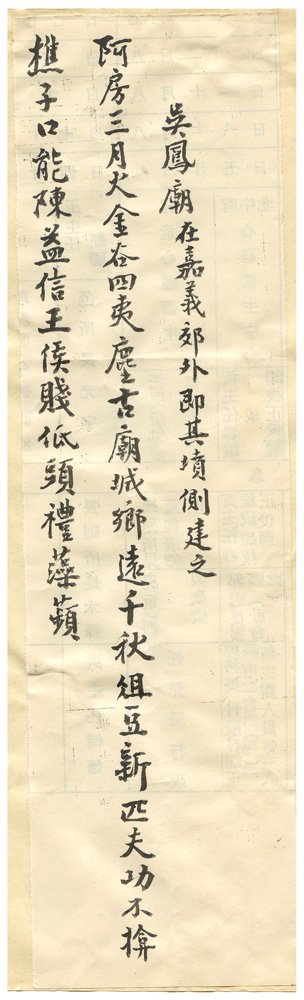 吳鳳廟在嘉義郊外即其墳側建之
阿房三月火金谷四夷塵古廟城鄉遠千秋俎豆新匹夫功不揜
樵子口能陳益信王侯賤低頭禮藻蘋